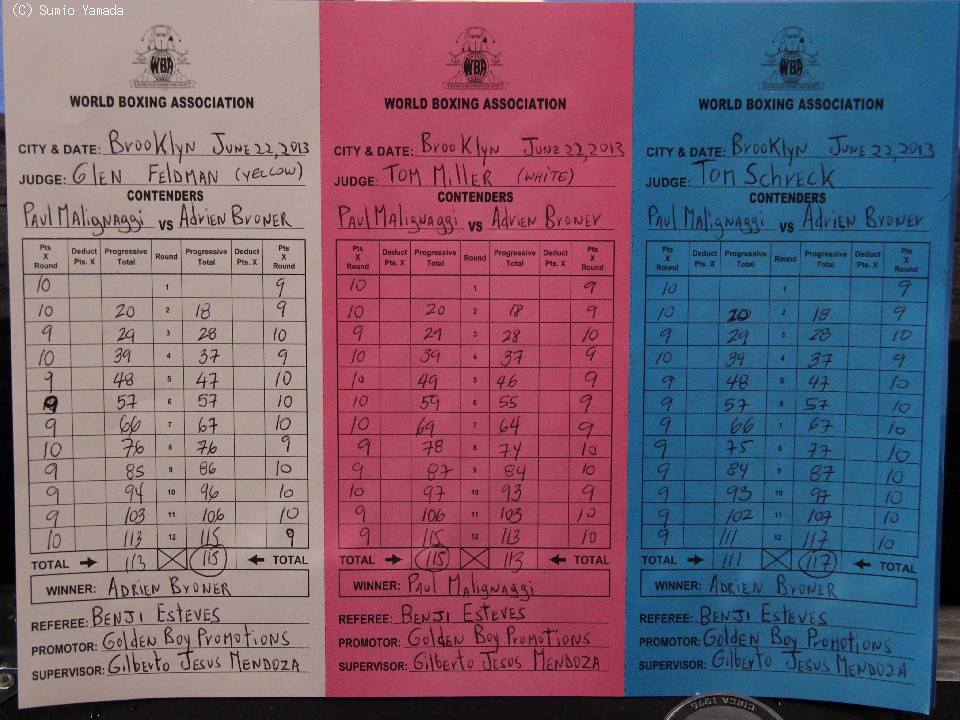 (C) Sumio Yamada
WBA
WORLD BOXING ASSOCIATION
CITY & DATE: BrooKlyn June 22, 2013
JUDGE: Glen Feldman (Yellow)
CONTENDERS
Paul Malignaggi VS Adrien Broner
Pts X Round Deduct Pts. X Progressive Total Round Progressive Total Deduct Pts. X Pts X Round
10 1 9
10 20 2 18 9
9 29 3 28 10
10 39 4 37 9
9 48 5 47 10
9 57 6 57 10
9 66 7 67 10
10 76 8 76 9
9 85 9 86 10
9 94 10 96 10
9 103 11 106 10
10 113 12 115 9
TOTAL 113 115 TOTAL
WINNER: Adrien Broner
REFEREE: Benji Esteves
PROMOTOR: Golden Boy Promotions
SUPERVISOR: Gilberto Jesus Mendoza
WBA
WORLD BOXING ASSOCIATION
CITY & DATE: BrooKlyn June 22, 2013
JUDGE: Tom Miller (White)
CONTENDERS
Paul Malignaggi VS Adrien Broner
Pts X Round Deduct Pts. X Progressive Total Round Progressive Total Deduct Pts. X Pts X Round
10 1 9
10 20 2 18 9
9 29 3 28 10
10 39 4 37 9
10 49 5 46 9
10 59 6 55 9
10 69 7 64 9
9 78 8 74 10
9 87 9 84 10
10 97 10 93 9
9 106 11 103 10
9 115 12 113 10
TOTAL 115 113 TOTAL
WINNER: Paul Malignaggi
REFEREE: Benji Esteves
PROMOTOR: Golden Boy Promotions
SUPERVISOR: Gilberto Jesus Mendoza
WBA
WORLD BOXING ASSOCIATION
CITY & DATE: BrooKlyn June 22, 2013
JUDGE: Tom Schreck
CONTENDERS
Paul Malignaggi VS Adrien Broner
Pts X Round Deduct Pts. X Progressive Total Round Progressive Total Deduct Pts. X Pts X Round
10 1 9
10 20 2 18 9
9 29 3 28 10
10 39 4 37 9
9 48 5 47 10
9 57 6 57 10
9 66 7 67 10
9 75 8 77 10
9 84 9 87 10
9 93 10 97 10
9 102 11 107 10
9 111 12 117 10
TOTAL 111 117 TOTAL
WINNER: Adrien Broner
REFEREE: Benji Esteves
PROMOTOR: Golden Boy Promotions
SUPERVISOR: Gilberto Jesus Mendoza
CIRCA 1995